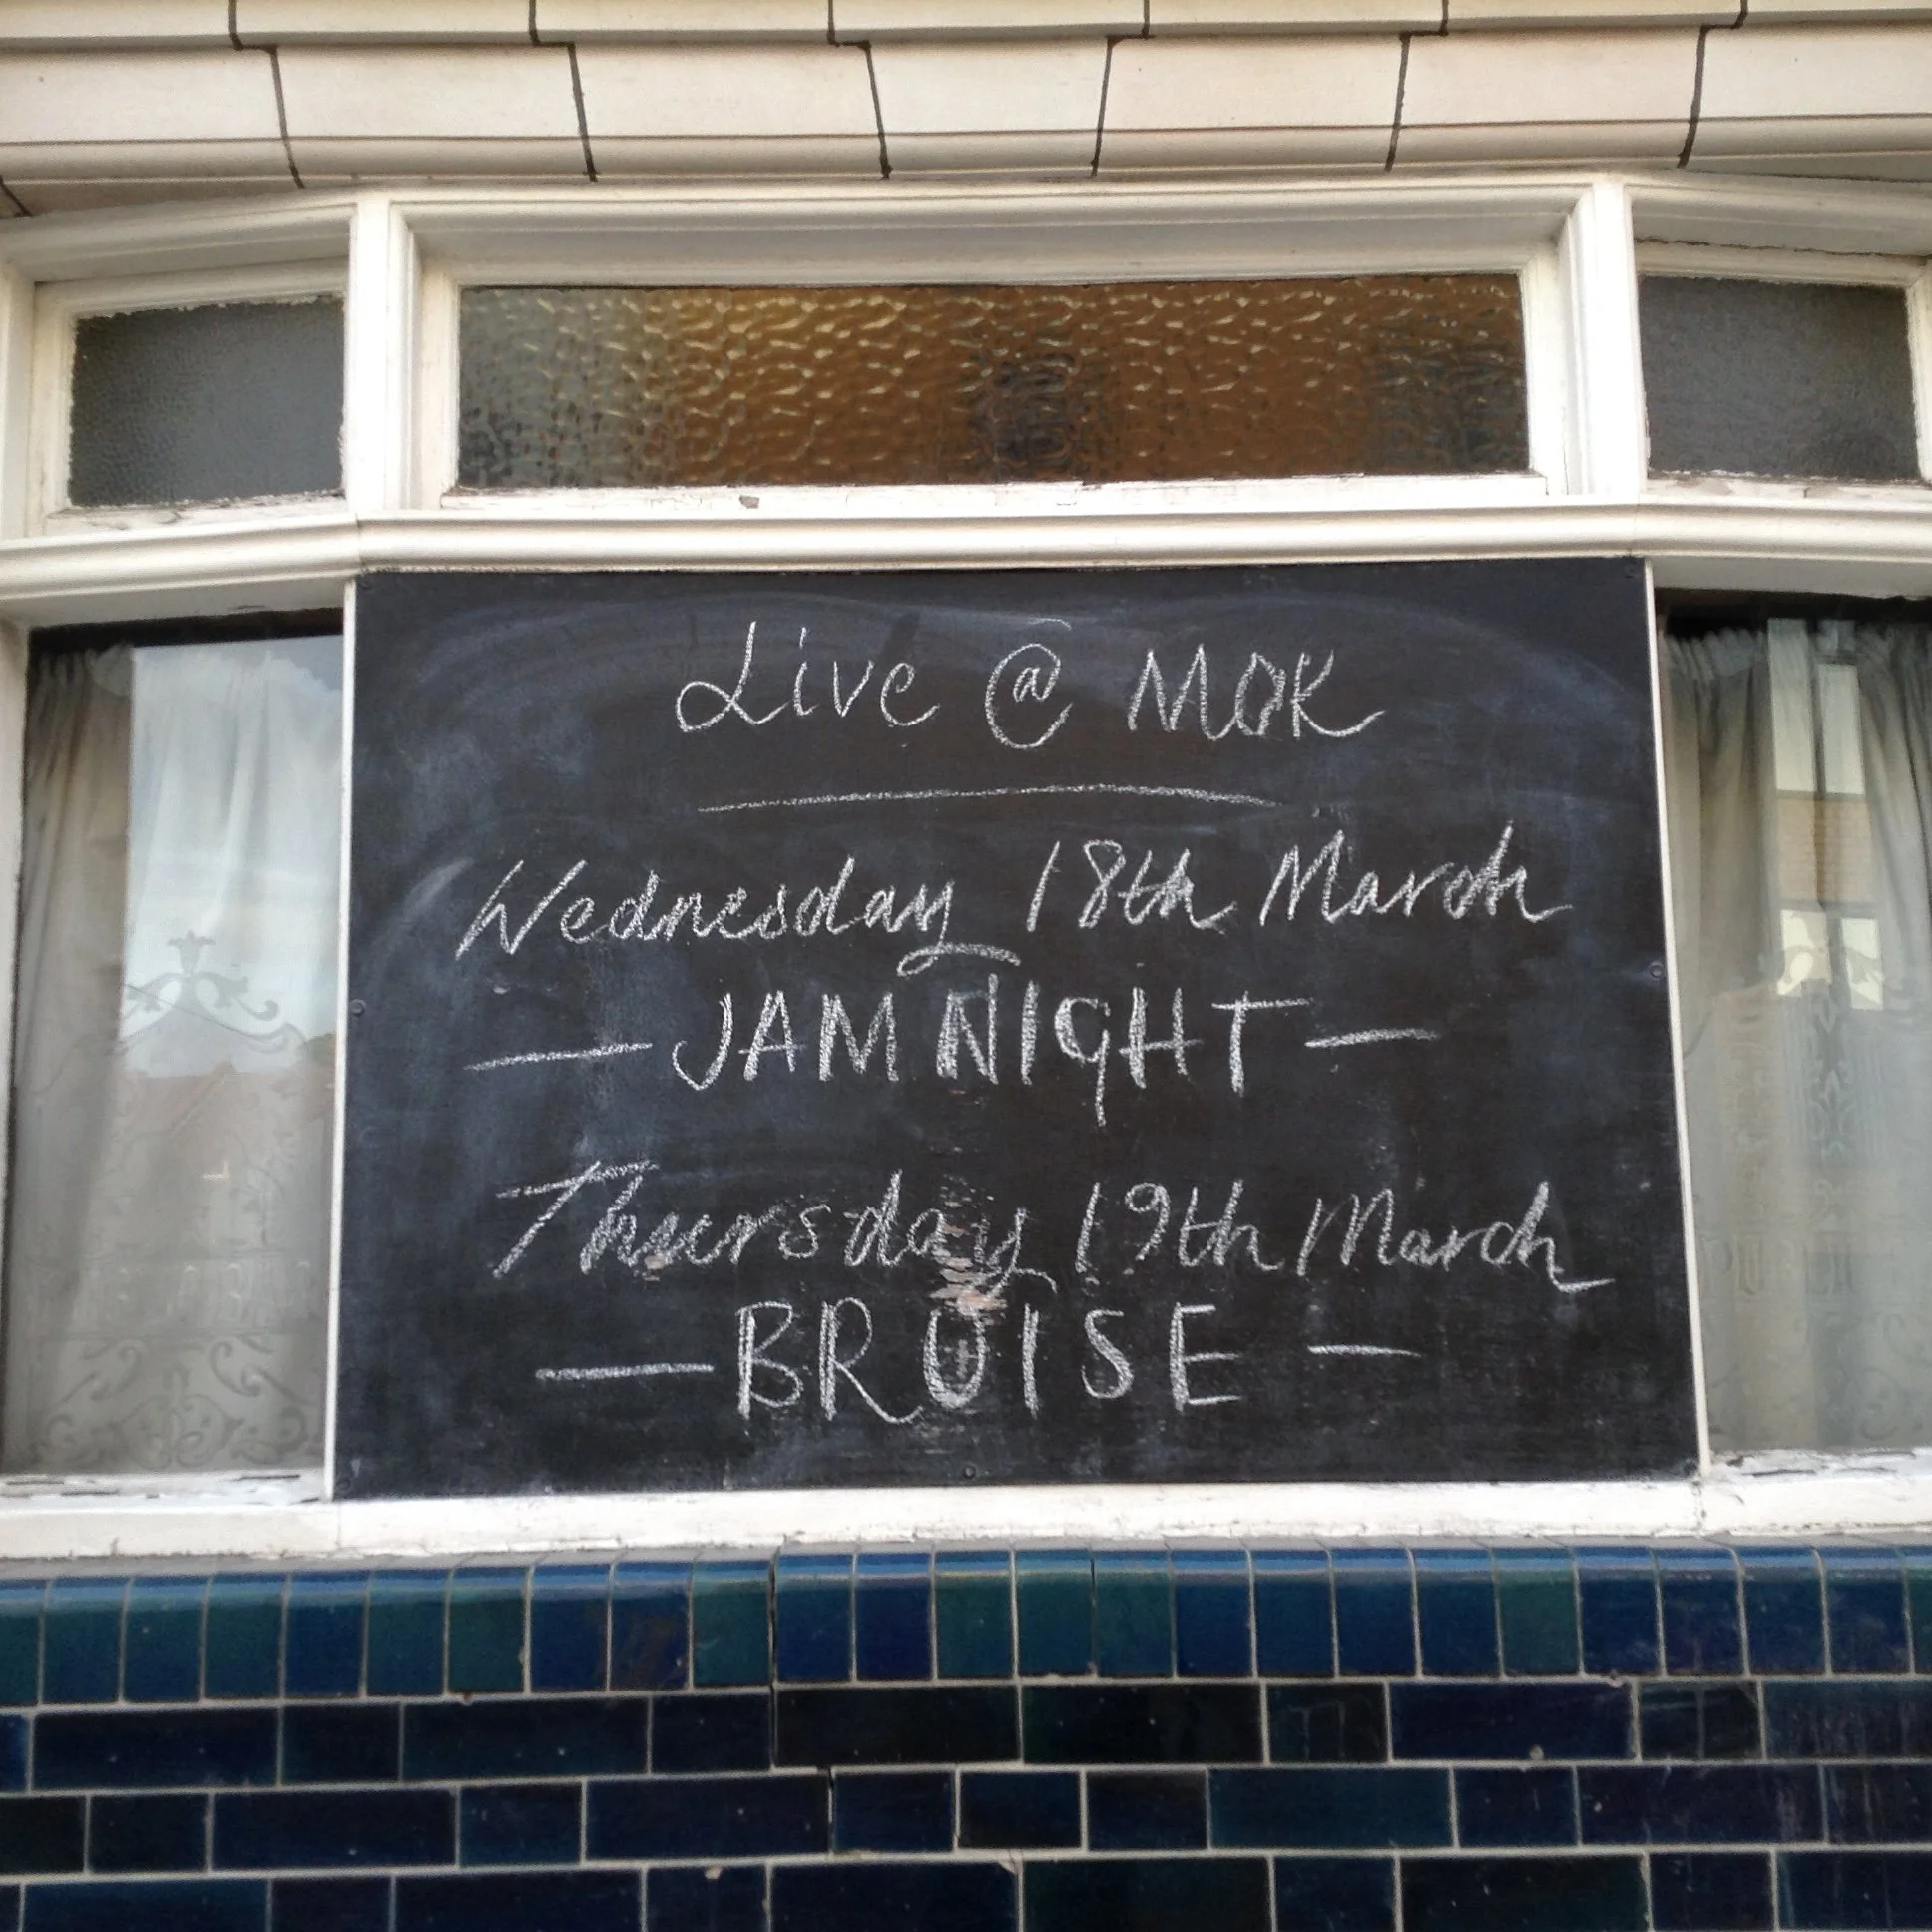 Live @ MOK
Wednesday 18th March
— JAM NIGHT —
Thursday 19th March
— BRUISE —